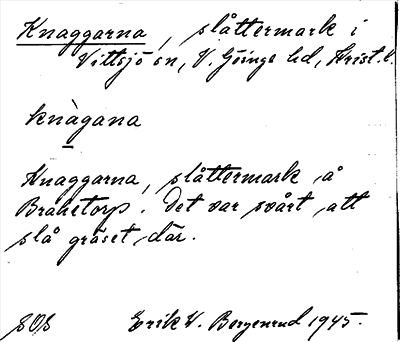 Knaggarna, slåttermark i
Vittsjö sn, V. Göinge hd, Krist. l.
knàgana
Knaggarna, slåttermark å
Brahetorp. Det var svårt att
slå gräset där.
SOS Erik W. Bergenrud 1945.